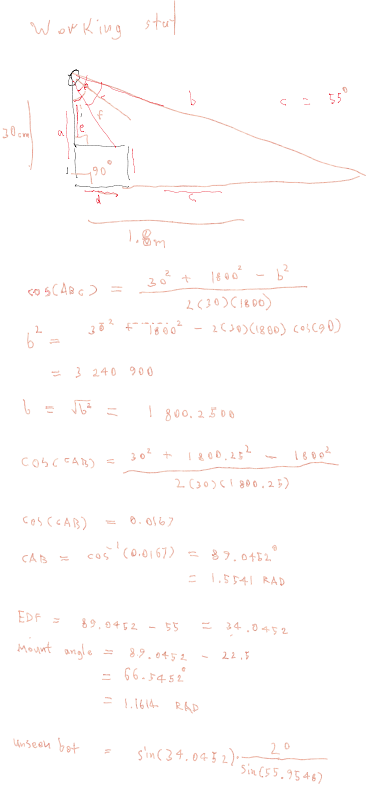 Working stuf
b
c = 55°
f
a
e
30cm
90°
d
c
1.8m
cos(ABC) = 30² + 1800² - b² / 2(30)(1800)
b² = 30² + 1800² - 2(30)(1800) cos(90)
= 3 240 900
b = √b² = 1 800.2500
cos(CAB) = 30² + 1800.25² - 1800² / 2(30)(1800.25)
cos(CAB) = 0.0167
CAB = cos⁻¹(0.0167) = 89.0452°
= 1.5541 RAD
EDF = 89.0452 - 55 = 34.0452
Mount angle = 89.0452 - 22.5
= 66.5452°
= 1.1614 RAD
unseen bot = sin(34.0452) · 20 / sin(55.9548)